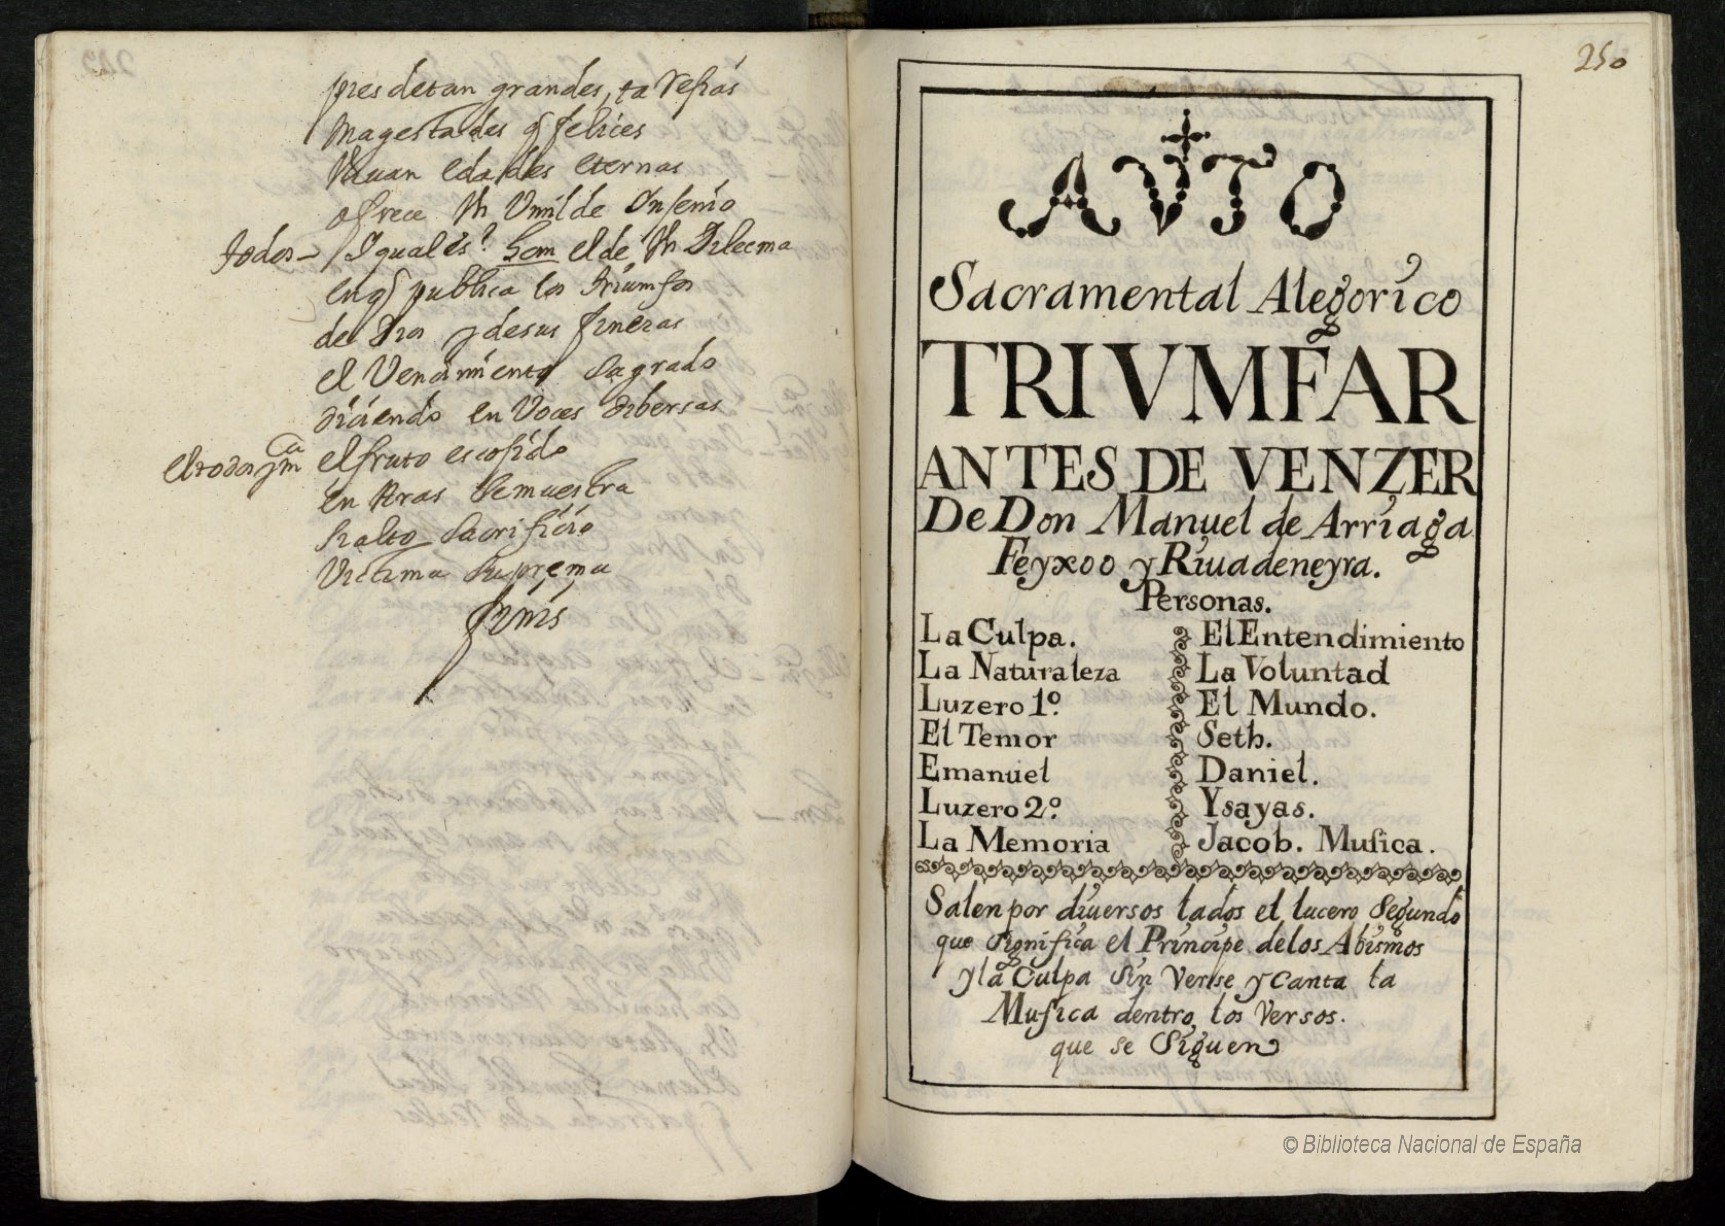 pies detan grandes,
Magestades q felices
Viuan edades eternas
ofrece Vmilde Ynjenio
todos – Yguales? Son el de
en q publica los triumfos
de Dios y desus finezas
el Vencimiento Sagrado
diciendo en Voces dibersas
el fruto escojido
en Aras Semuestra
Sacrificio
Victima Suprema
finis
250
AVTO
Sacramental Alegorico
TRIVMFAR
ANTES DE VENZER
De Don Manuel de Arriaga
Feyxoo y Riuadeneyra.
Personas.
La Culpa. El Entendimiento
La Naturaleza La Voluntad
Luzero 1º. El Mundo.
El Temor Seth.
Emanuel Daniel.
Luzero 2º. Ysayas.
La Memoria Jacob. Musica.
Salen por diuersos lados el lucero Segundo
que Significa el Principe delos Abismos
y la Culpa Sin Verse y Canta la
Musica dentro los Versos.
que se Siguen
© Biblioteca Nacional de España